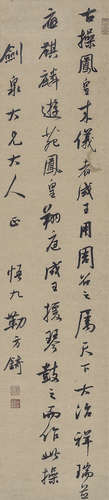 古操鳳皇來儀者成王用周召之屬天下大治殊瑞並
應麒麟遊苑鳳皇翔庭成王援琴鼓之而作此操
劍泉大兄大人 正
悟九勒方錡